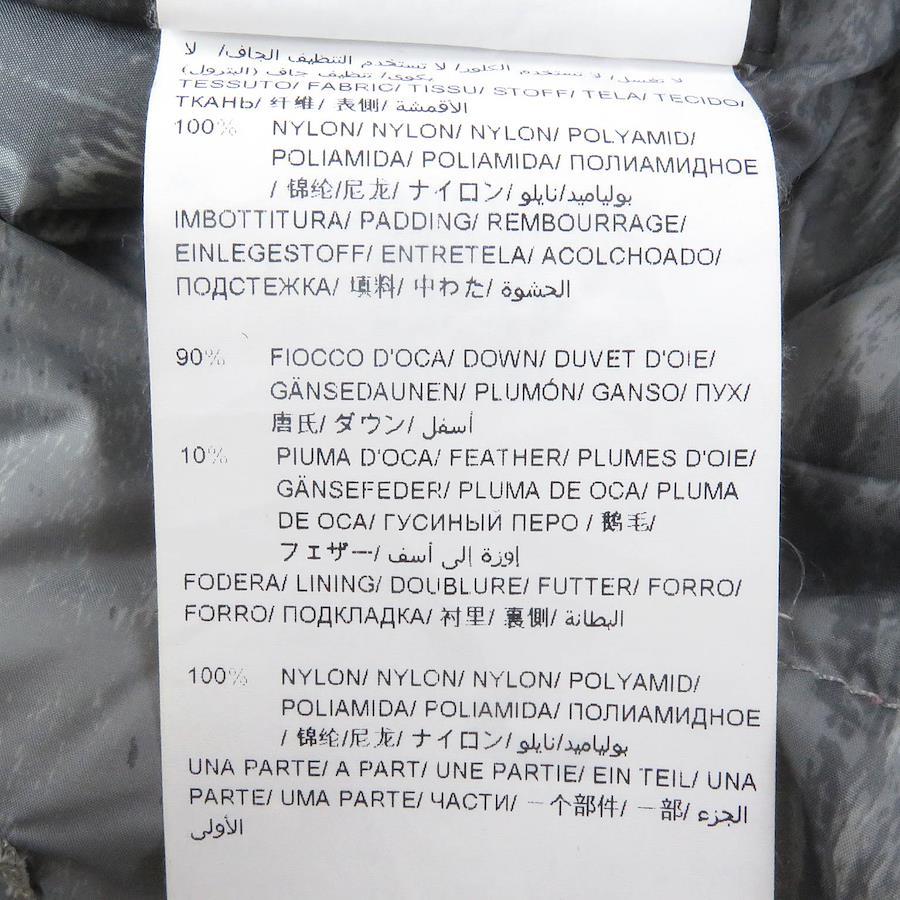 لا تغسل/ لا تستخدم الكلور/ لا تستخدم التنظيف الجاف/ لا
يكوى/ تنظيف جاف (البترول)
TESSUTO/ FABRIC/ TISSU/ STOFF/ TELA/ TECIDO/
ТКАНЬ/ 纤维/ 表側/ الأقمشة
100% NYLON/ NYLON/ NYLON/ POLYAMID/
POLIAMIDA/ POLIAMIDA/ ПОЛИАМИДНОЕ
/ 锦纶/尼龙/ ナイロン/ بولياميد/نايلو
IMBOTTITURA/ PADDING/ REMBOURRAGE/
EINLEGESTOFF/ ENTRETELA/ ACOLCHOADO/
ПОДСТЕЖКА/ 填料/ 中わた/ الحشوة
90% FIOCCO D'OCA/ DOWN/ DUVET D'OIE/
GÄNSEDAUNEN/ PLUMÓN/ GANSO/ ПУХ/
唐氏/ ダウン/ أسفل
10% PIUMA D'OCA/ FEATHER/ PLUMES D'OIE/
GÄNSEFEDER/ PLUMA DE OCA/ PLUMA
DE OCA/ ГУСИНЫЙ ПЕРО / 鹅毛/
フェザー/ إوزة إلى أسف
FODERA/ LINING/ DOUBLURE/ FUTTER/ FORRO/
FORRO/ ПОДКЛАДКА/ 衬里/ 裏側/ البطانة
100% NYLON/ NYLON/ NYLON/ POLYAMID/
POLIAMIDA/ POLIAMIDA/ ПОЛИАМИДНОЕ
/ 锦纶/尼龙/ ナイロン/ بولياميد/نايلو
UNA PARTE/ A PART/ UNE PARTIE/ EIN TEIL/ UNA
PARTE/ UMA PARTE/ ЧАСТИ/ 一个部件/ 一部/ الجزء
الأولى